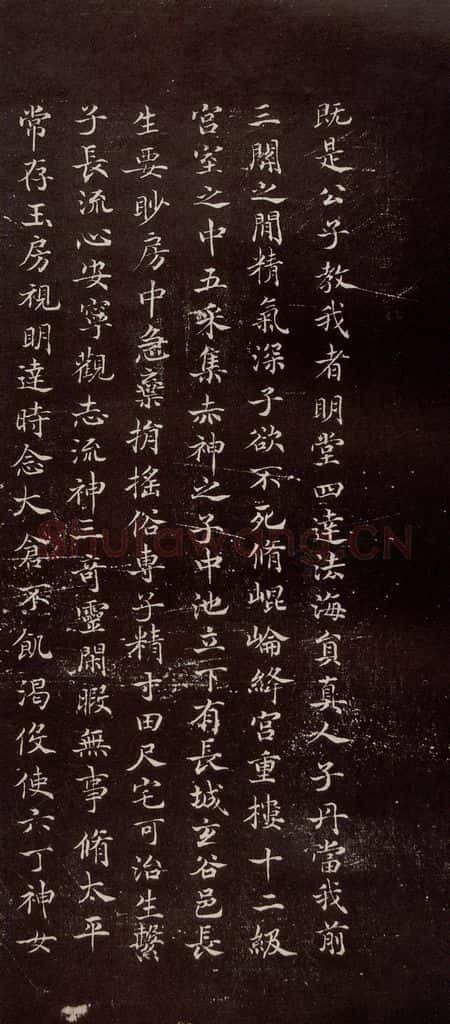 既是公子教我者明堂四達法海員真人子丹當我前
三關之間精氣深子欲不死脩崐崘絳宮重樓十二級
宮室之中五采集赤神之子中池立下有長城玄谷邑長
生要眇房中急棄捐搖俗專子精寸田尺宅可治生繫
子長流心安寧觀志流神三奇靈閑暇無事脩太平
常存玉房視明達時念大倉不飢渴役使六丁神女
Shufawang.CN